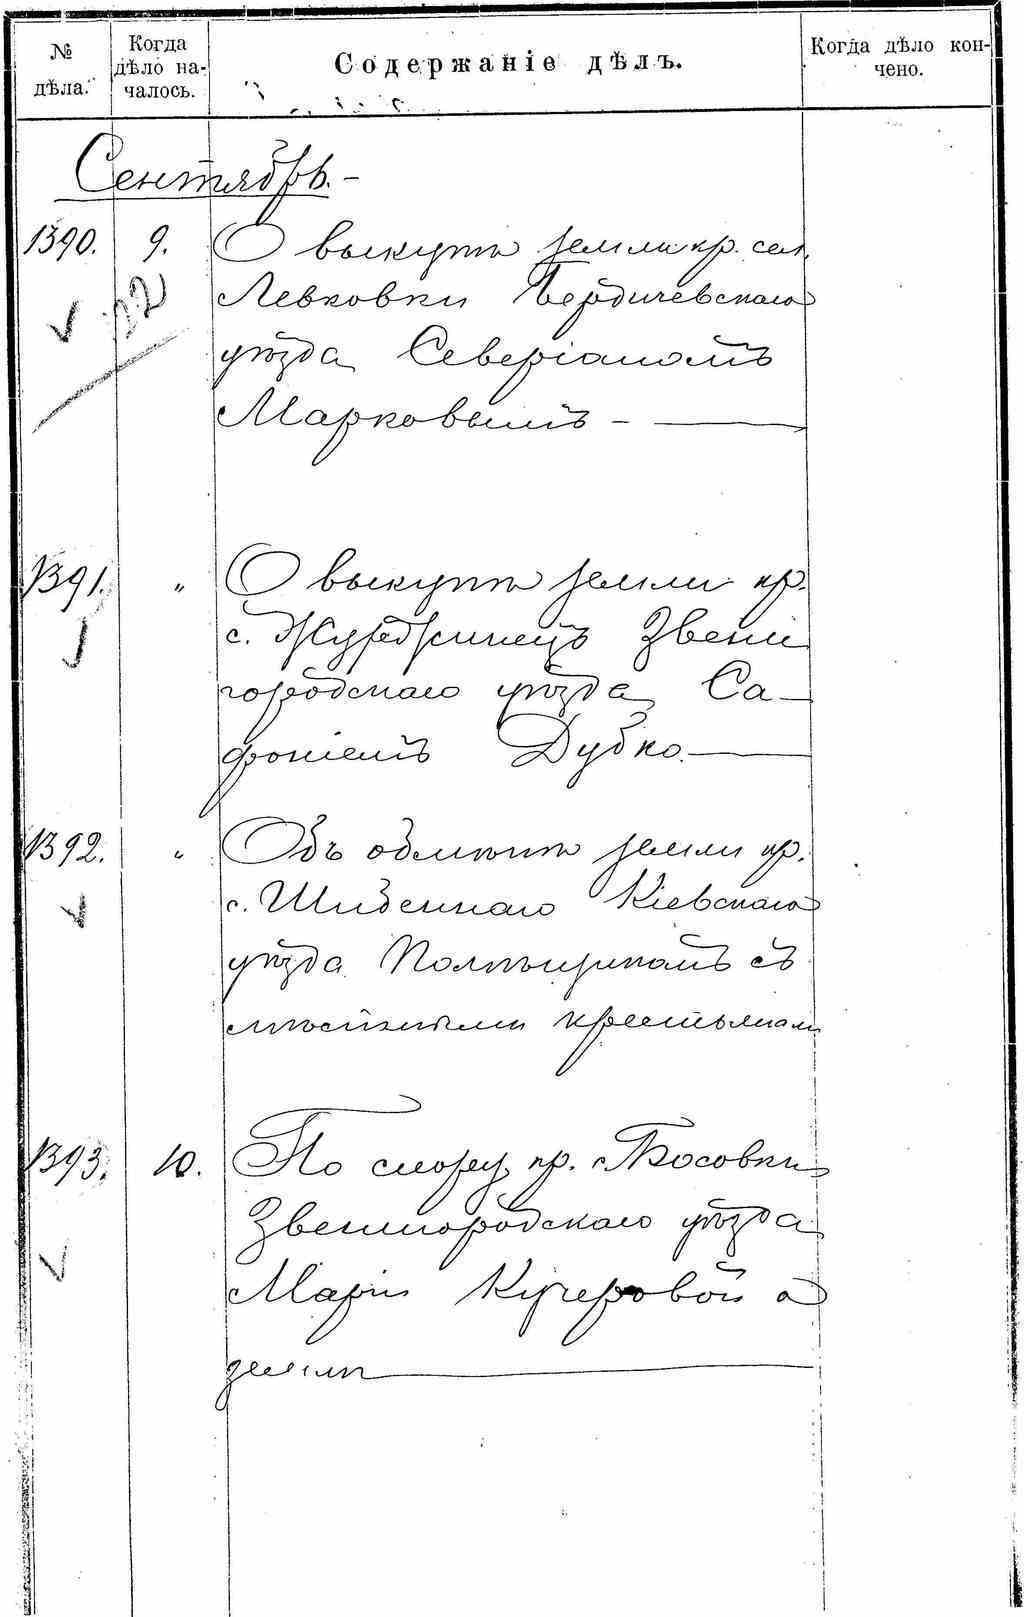 № дѣла.
Когда дѣло на-
чалось.
Содержаніе дѣлъ.
Когда дѣло кон-
чено.
Сентябрь.-
1390. 9. О выкупѣ земли кр. сел.
22 Левковки Бердичевскаго
уѣзда Северіаномъ
Марковымъ -
1391. " О выкупѣ земли кр.
с. Журжинецъ Звени
городскаго уѣзда Са-
фоніемъ Дубко.
1392. " Объ обмѣнѣ земли кр.
с. Шибеннаго Кіевскаго
уѣзда съ
мѣстными крестьянами
1393. 10. По спору кр. с. Босовки
Звенигородскаго уѣзда
Маріи Кучеровой о
землѣ